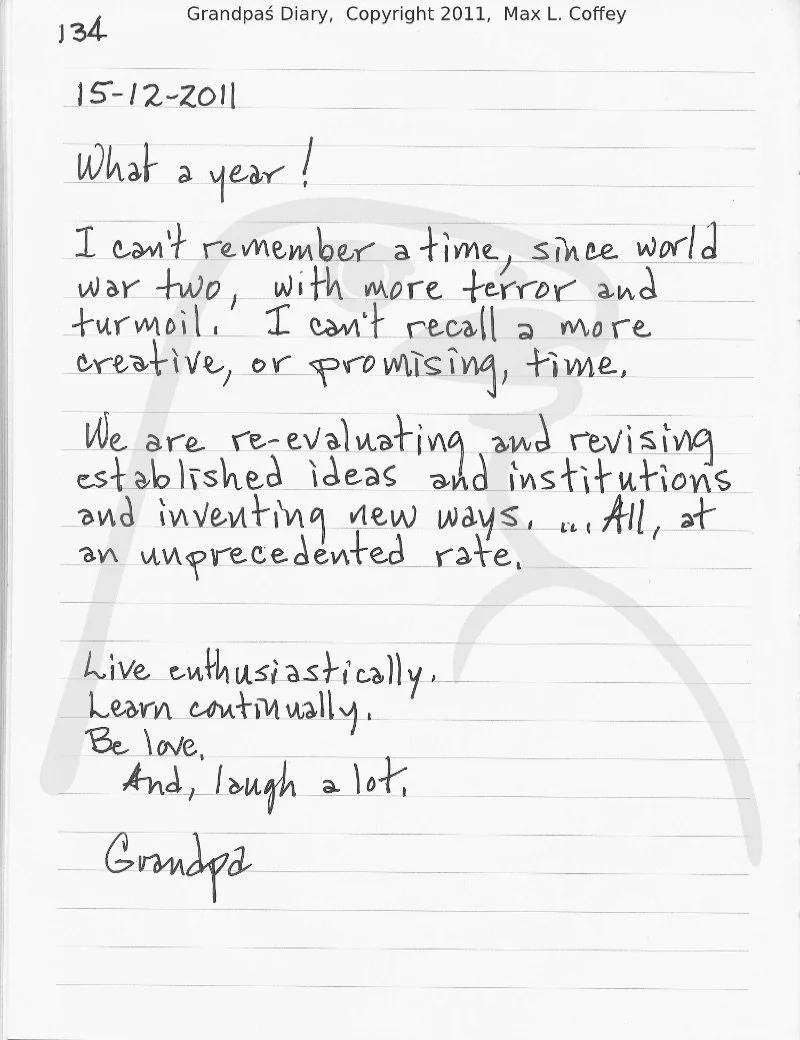 Grandpaś Diary, Copyright 2011, Max L. Coffey
134
15-12-2011
What a year!
I can't remember a time, since world
war two, with more terror and
turmoil. I can't recall a more
creative, or promising, time.
We are re-evaluating and revising
established ideas and institutions
and inventing new ways. ... All, at
an unprecedented rate.
Live enthusiastically.
Learn continually.
Be love.
And, laugh a lot.
Grandpa